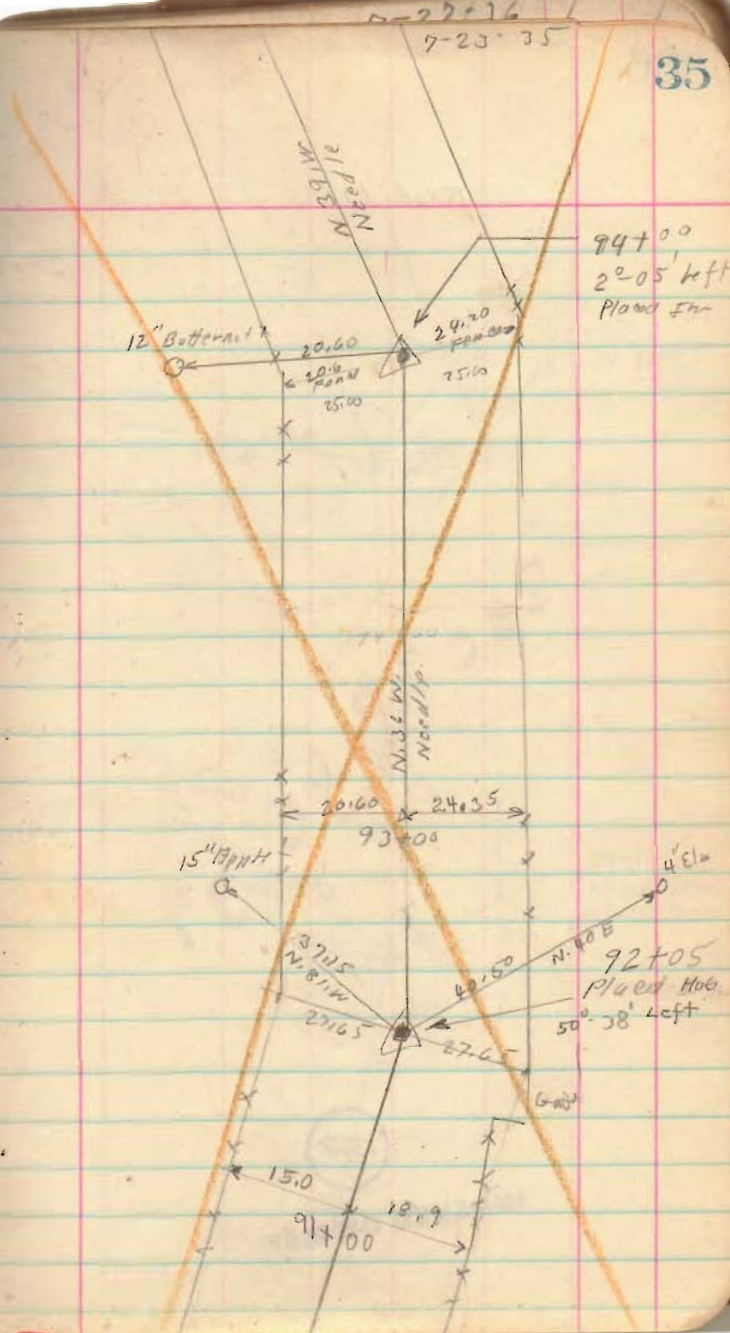 7-23-35
35
N.39.W.
Needle
94+00
2°-05' Left
Placed
12" Butternut
20.60
24.20
Fence
20.6
Fence
25.00
25.00
N.36 W.
Needle
20.60
24.35
93+00
15"
4" Elm
37.15
N.81.W
40.50
N.40 E
92+05
Placed Hub
50°-38' Left
27.65
27.65
15.0
18.9
91+00